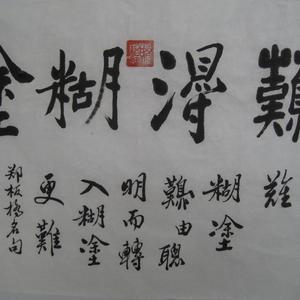 難得糊塗
难
糊塗
難由聰
明而轉
入糊塗
更難
郑板橋名句